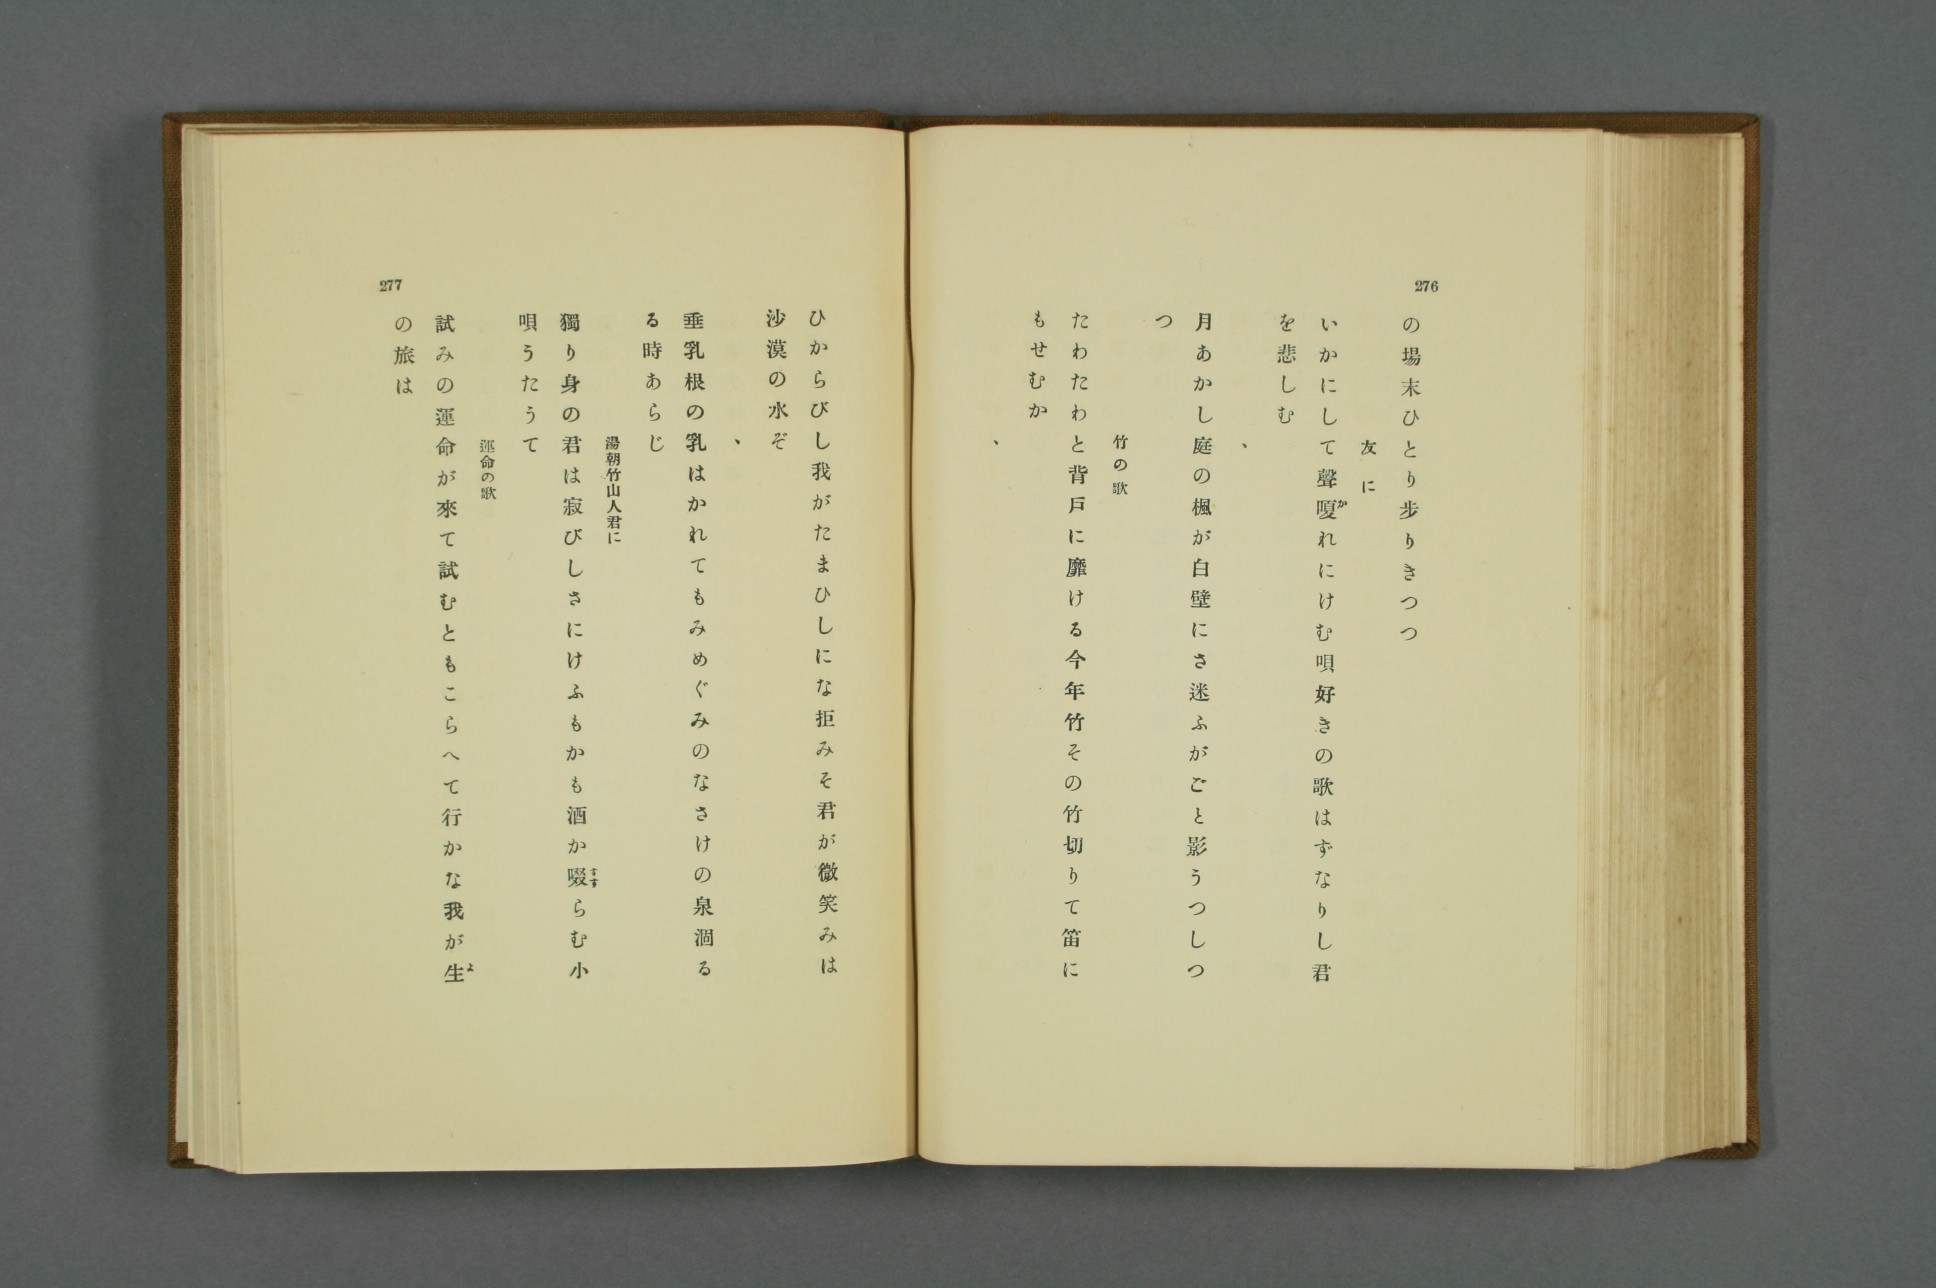 276
の場末ひとり歩りきつつ
友に
いかにして聲嗄れにけむ唄好きの歌はずなりし君
を悲しむ
、
月あかし庭の楓が白壁にさ迷ふがごと影うつしつ
つ
竹の歌
たわたわと背戸に靡ける今年竹その竹切りて笛に
もせむか
、
ひからびし我がたまひしにな拒みそ君が微笑みは
沙漠の水ぞ
、
垂乳根の乳はかれてもみめぐみのなさけの泉涸る
る時あらじ
湯朝竹山人君に
獨り身の君は寂びしさにけふもかも酒か啜らむ小
唄うたうて
運命の歌
試みの運命が來て試むともこらへて行かな我が生
の旅は
277